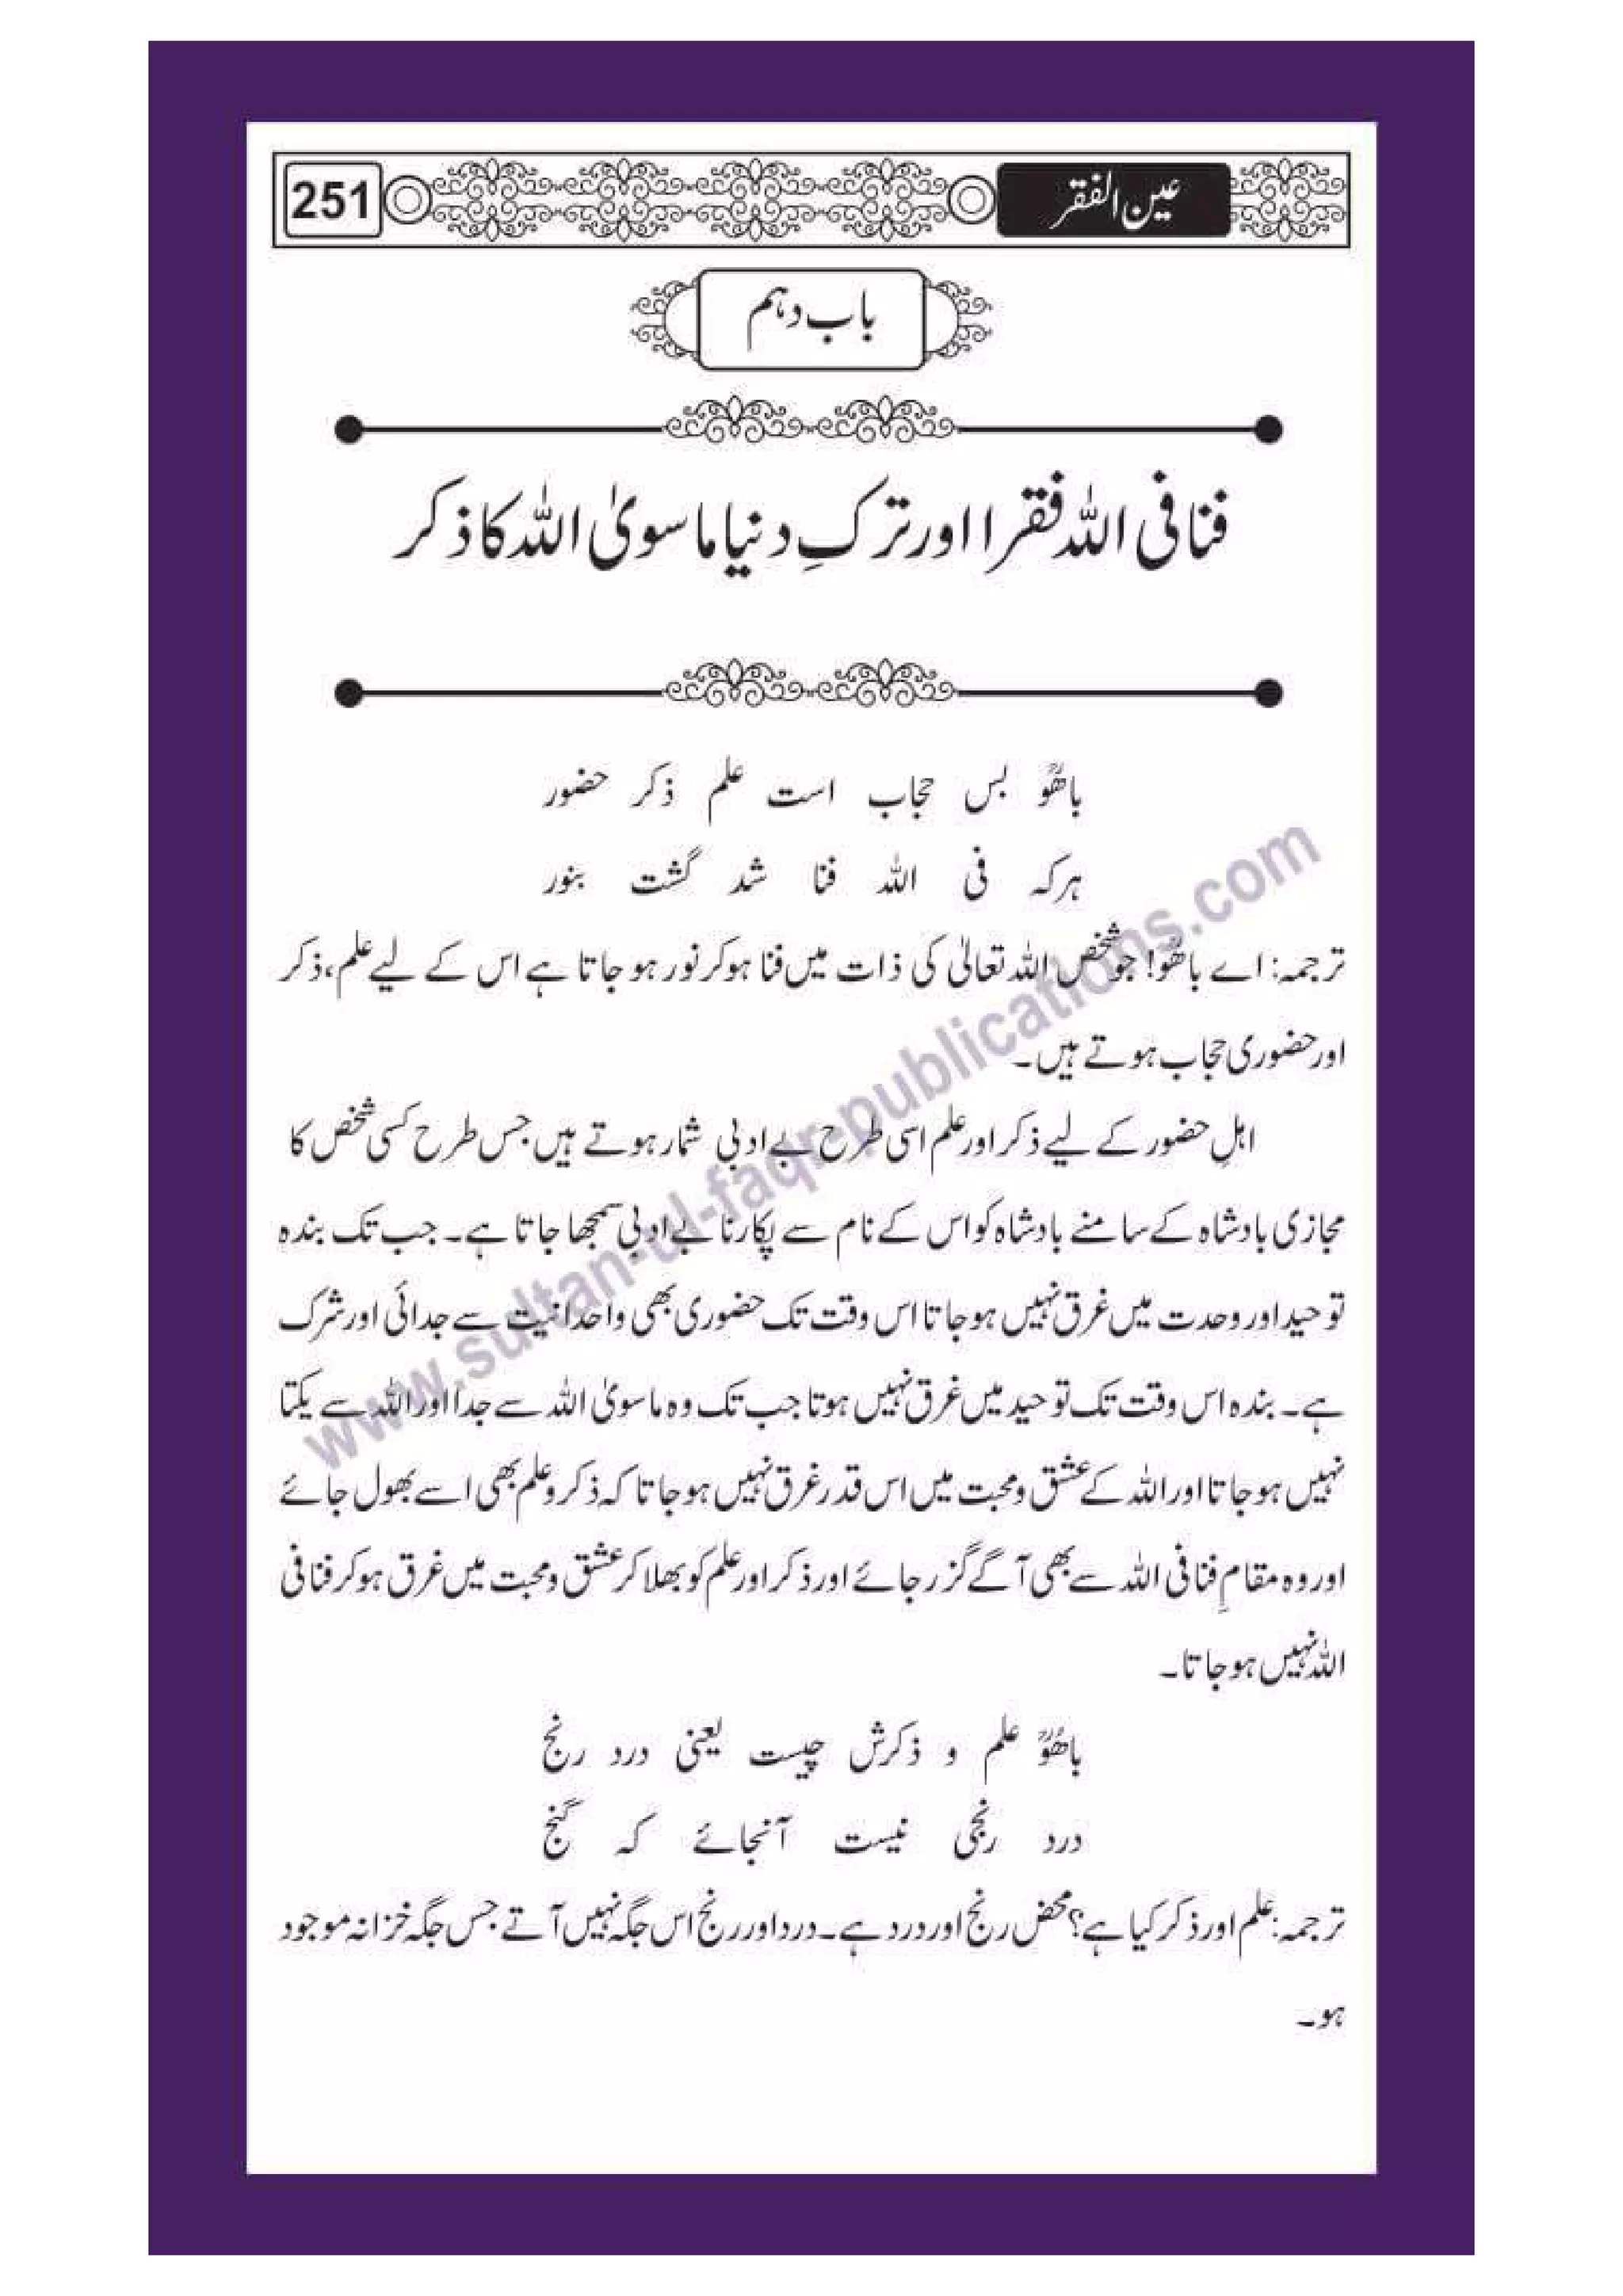 عین الفقر
251
باب دہم
فنا فی اللہ فقرا اور ترکِ دنیا ماسویٰ اللہ کا ذکر
باھُوؒ بس حجاب است علم ذکر حضور
ہرکہ فی اللہ فنا شد گشت بنور
ترجمہ: اے باھُو! جو شخص اللہ تعالیٰ کی ذات میں فنا ہوکر نور ہو جاتا ہے اس کے لیے علم، ذکر
اور حضوری حجاب ہوتے ہیں۔
اہلِ حضور کے لیے ذکر اور علم اسی طرح بے ادبی شمار ہوتے ہیں جس طرح کسی شخص کا
مجازی بادشاہ کے سامنے بادشاہ کو اس کے نام سے پکارنا بے ادبی سمجھا جاتا ہے۔ جب تک بندہ
توحید اور وحدت میں غرق نہیں ہو جاتا اس وقت تک حضوری بھی واحدانیت سے جدائی اور شرک
ہے۔ بندہ اس وقت تک توحید میں غرق نہیں ہوتا جب تک وہ ماسویٰ اللہ سے جدا اور اللہ سے یکتا
نہیں ہو جاتا اور اللہ کے عشق و محبت میں اس قدر غرق نہیں ہو جاتا کہ ذکر و علم بھی اسے بھول جائے
اور وہ مقامِ فنا فی اللہ سے بھی آگے گزر جائے اور ذکر اور علم کو بھلا کر عشق و محبت میں غرق ہو کر فنا فی
اللہ نہیں ہو جاتا۔
باھُوؒ علم و ذکرش چیست یعنی درد رنج
درد رنجی نیست آنجائے کہ گنج
ترجمہ: علم اور ذکر کیا ہے؟ محض رنج اور درد ہے۔ درد اور رنج اس جگہ نہیں آتے جس جگہ خزانہ موجود
ہو۔
www.sultan-ul-faqr-publications.com